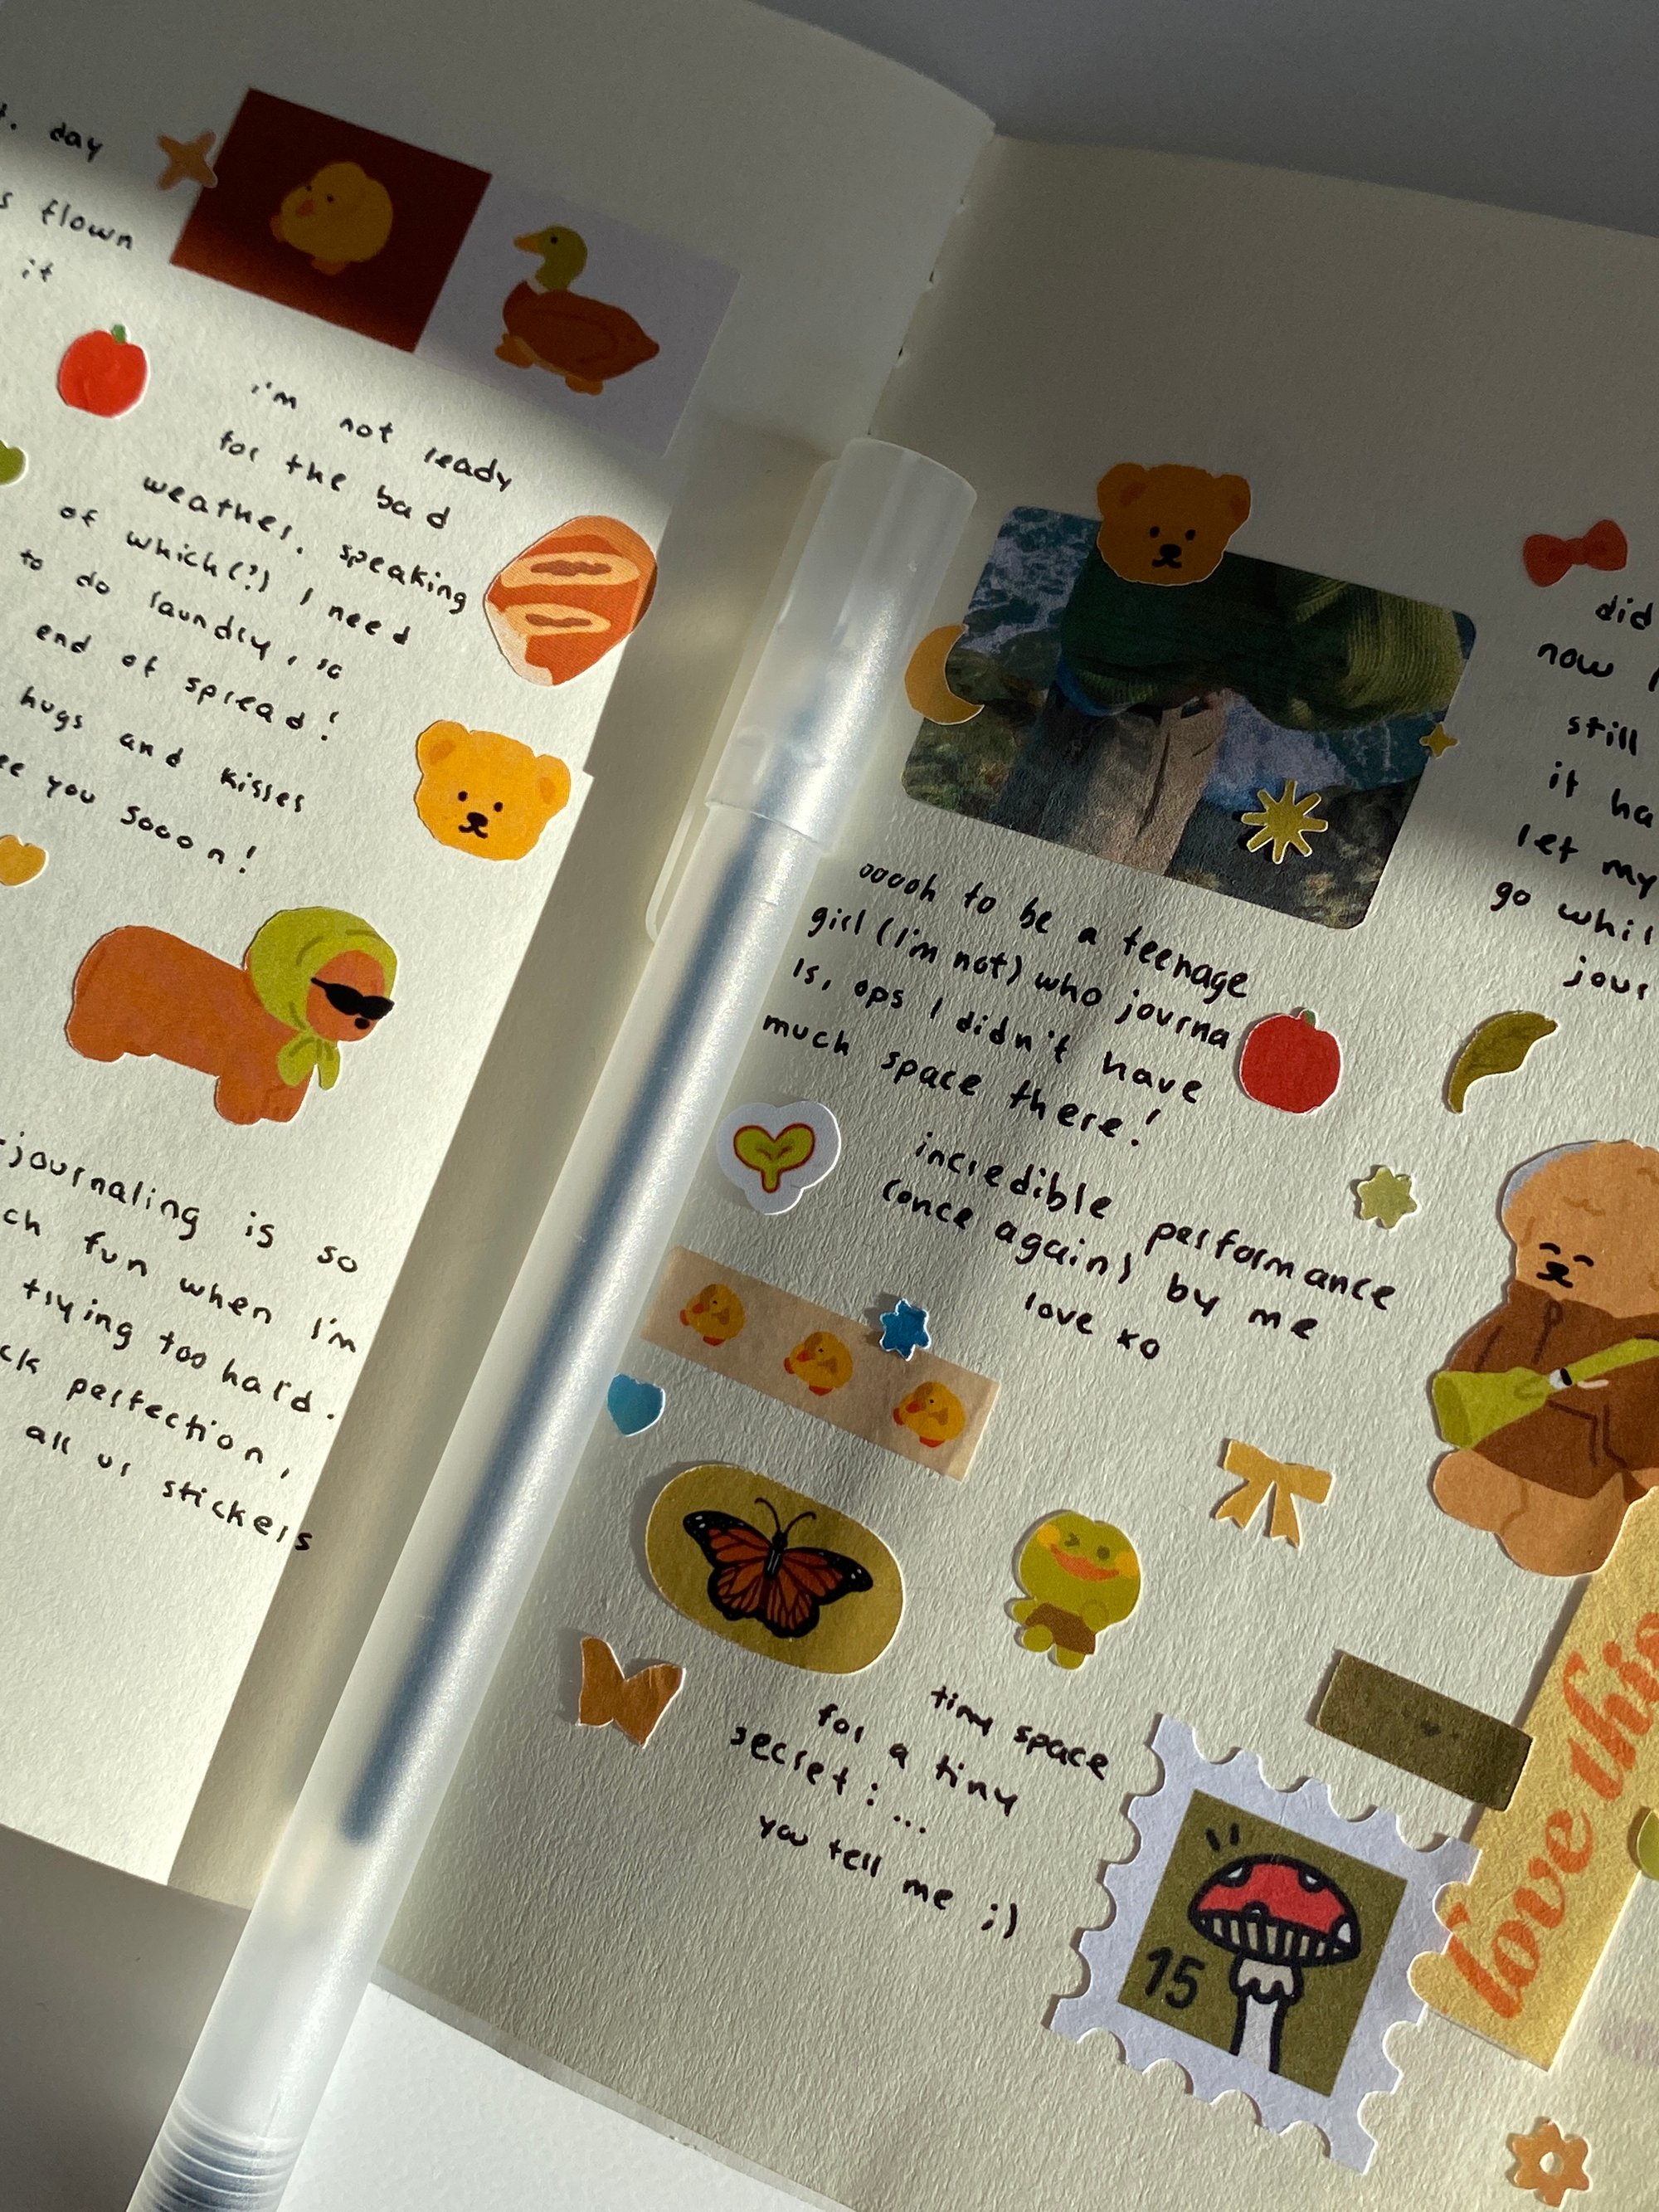 t. day
s flown
it
i'm not ready
for the bad
weather. speaking
of which(?) I need
to do laundry, so
end of spread!
hugs and kisses
ee you sooon!
-journaling is so
ch fun when I'm
trying too hard.
ck perfection,
all us stickers
ooooh to be a teenage
girl (I'm not) who journa
ls, ops I didn't have
much space there!
incredible performance
(once again) by me
love xo
tiny space
for a tiny
secret: ...
you tell me ;)
did
now I
still
it ha
let my
go whil
jour
love this
15